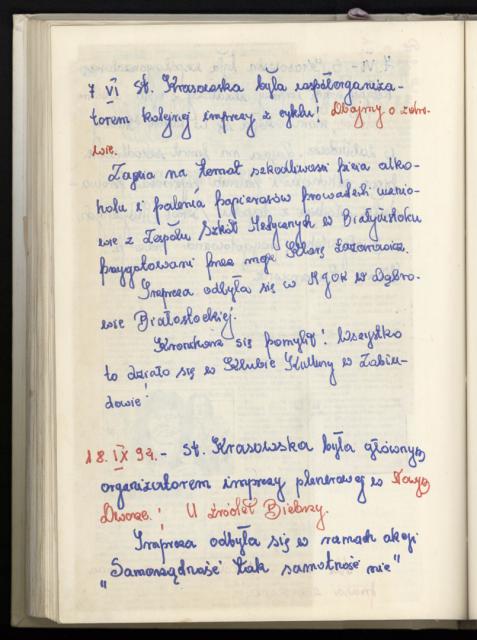 7 VI St. Krasowska była współorganiza-
torem kolejnej imprezy z cyklu: Dbajmy o zdro-
wie.
Zajęcia na temat szkodliwości picia alko-
holu i palenia papierosów prowadzili ucznio-
wie z Zespołu Szkół Medycznych w Białymstoku
przygotowani przez mgr
Impreza odbyła się w KGOK w Dąbro-
wie Białostockiej.
Kronikarz się pomylił! Wszystko
to działo się w Klubie Kultury w Zabłu-
dowie!
18.IX 94.- St. Krasowska była głównym
organizatorem imprezy plenerowej w Nowym
Dworze.! U źródeł Biebrzy.
Impreza odbyła się w ramach akcji
"Samorządność tak samotność nie"